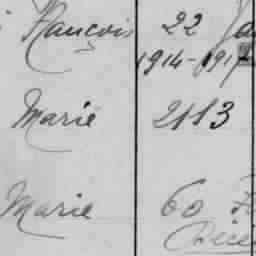 François 22 Ja
1914-1917
Marie 2113
Marie 60 F
Décé